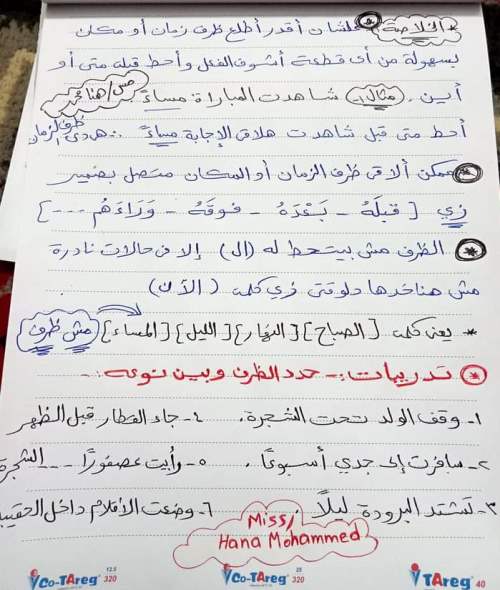 * الخلاصة * علشان أقدر أطلع ظرف زمان أو مكان
بسهولة من أى قطعة أشوف الفعل وأحط قبله متى أو
أين. مثال: شاهدت المباراة مساءً. مس/هنا محمد
أحط متى قبل شاهدت هلاقى الإجابة مساءً ∴ هى دى ظرف الزمان
* ممكن ألاقى ظرف الزمان أو المكان متصل بضمير
زي [قبلَهُ - بَعْدَهُ - فوقَهُ - وَرَاءَهُم - - - -]
* الظرف مش بيتحط له (ال) إلا فى حالات نادرة
مش هناخدها دلوقتى زي كلمة (الآن)
* يعنى كلمة [الصباح] [النهار] [الليل] [المساء] مش ظرف
* تدريبات :- حدد الظرف وبين نوعه :-
١- وقف الولد تحت الشجرة. ٤- جاد القطار قبل الظهر
٢- سافرت إلى جدي أسبوعًا. ٥- رأيت عصفورًا ---- الشجرة
٣- تشتد البرودة ليلًا. ٦- وضعت الأقلام داخل الحقيبة
Miss/
Hana Mohammed
Co-TAreg 12.5 320
Co-TAreg 25 320
TAreg 40